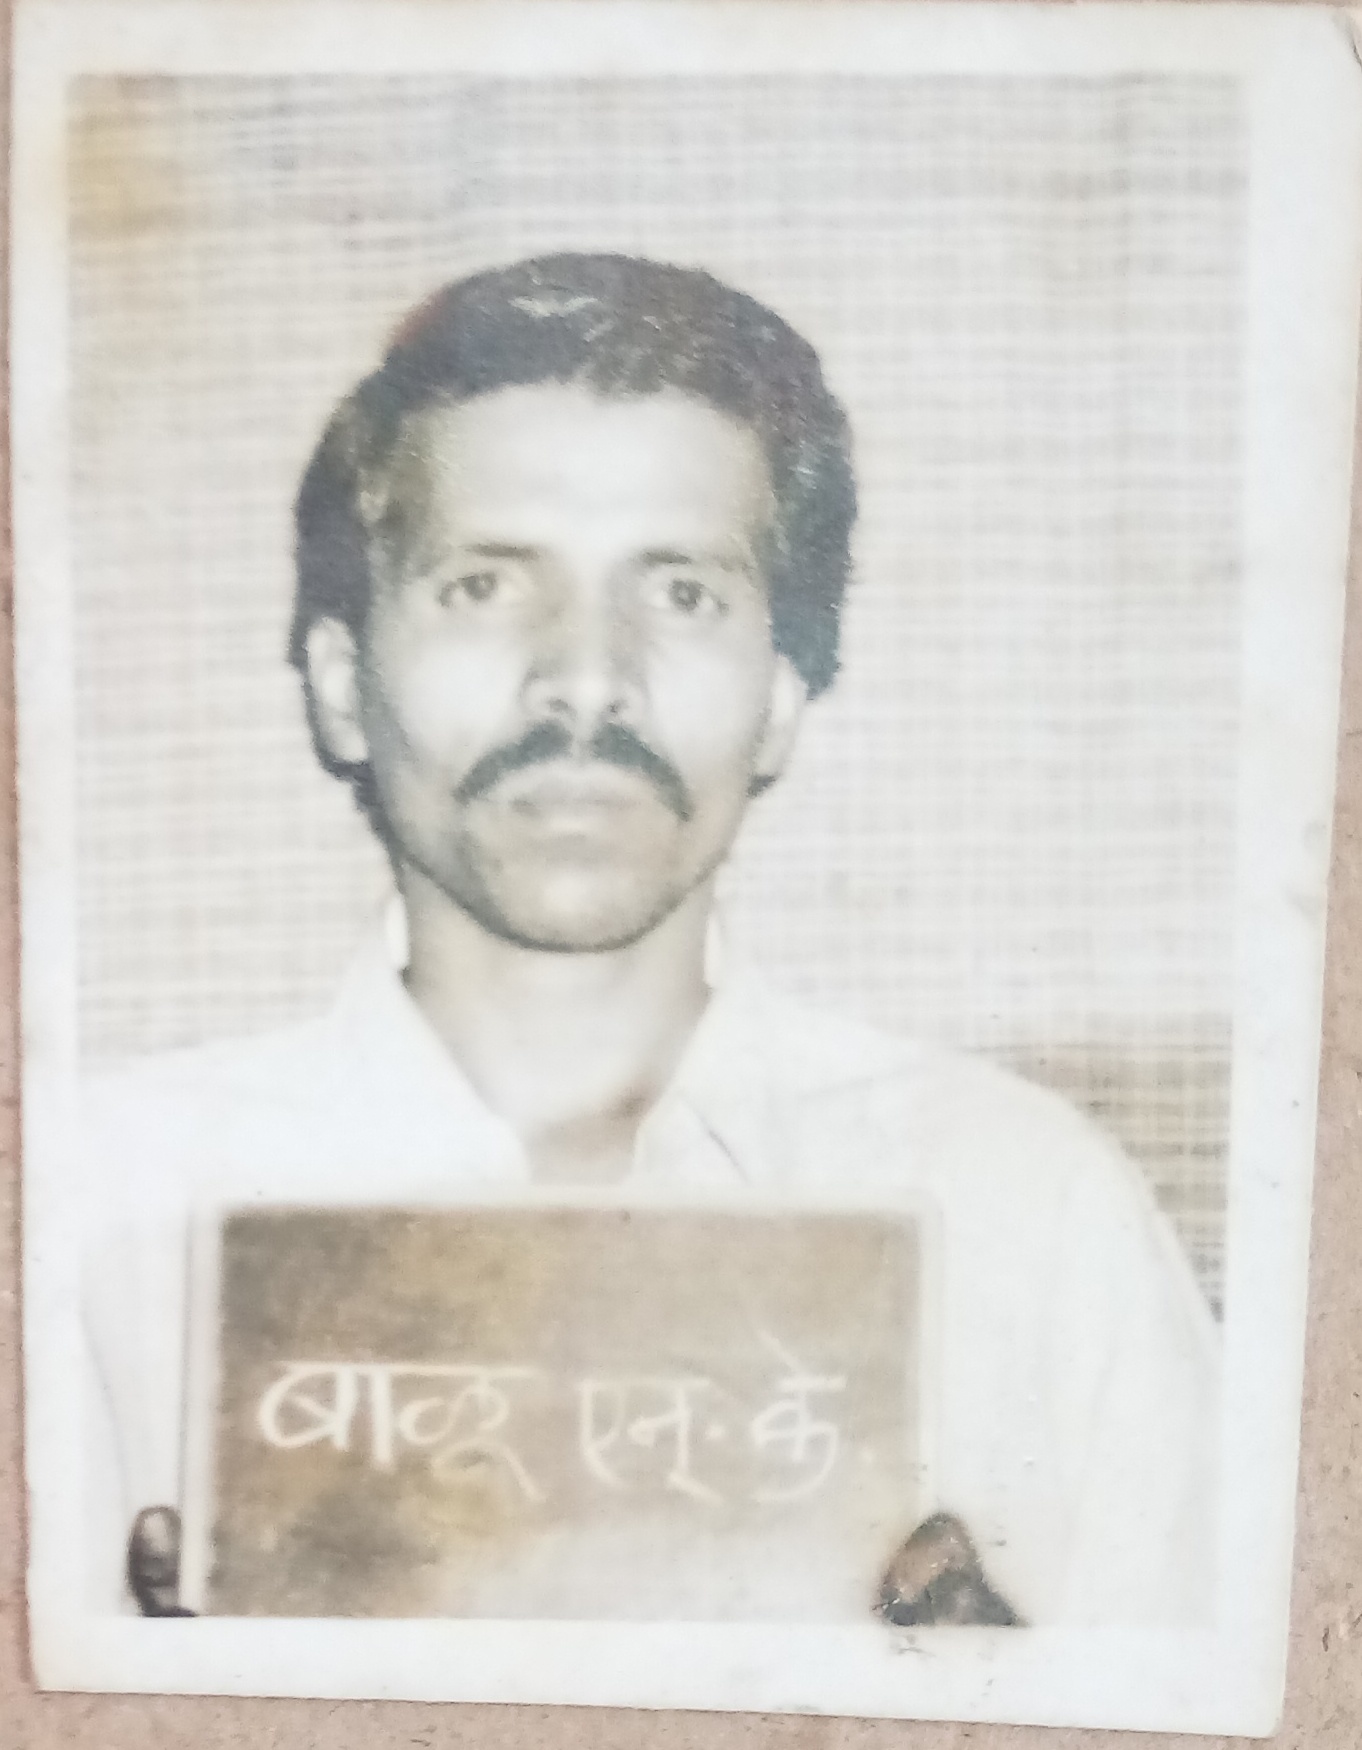 बाळू एन. के.